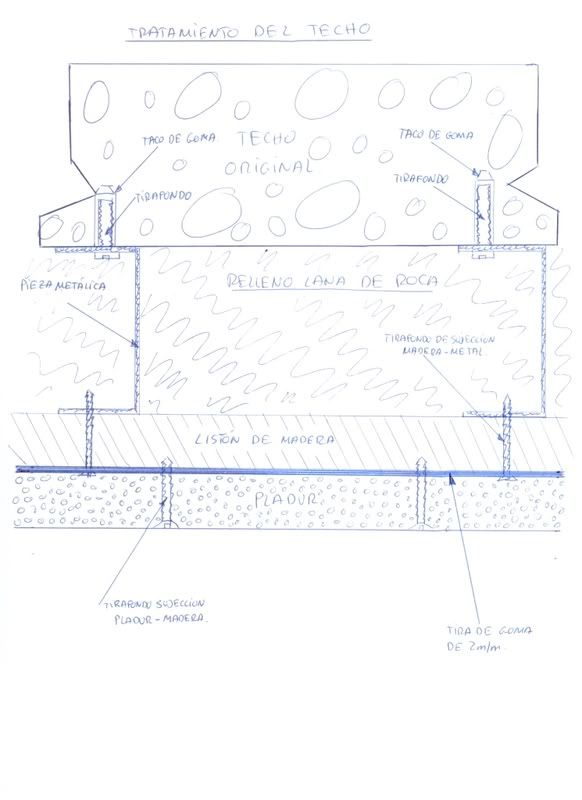 TRATAMIENTO DEL TECHO
TACO DE GOMA
TECHO
ORIGINAL
TACO DE GOMA
TIRAFONDO
TIRAFONDO
PIEZA METÁLICA
RELLENO LANA DE ROCA
TIRAFONDO DE SUJECCION
MADERA-METAL
LISTÓN DE MADERA
PLADUR
TIRAFONDO SUJECCION
PLADUR-MADERA.
TIRA DE GOMA
DE 2m/m.